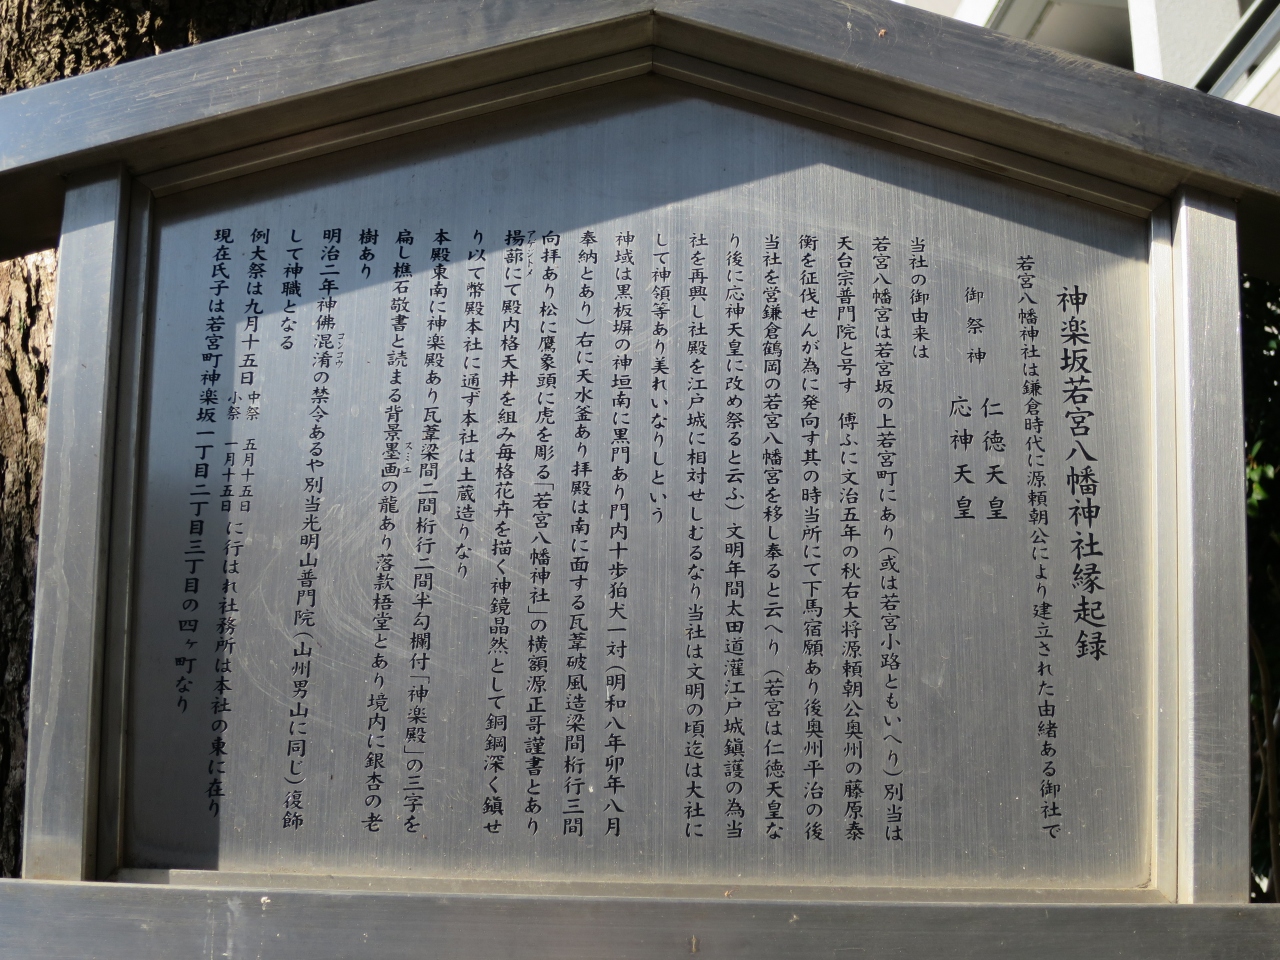 神楽坂若宮八幡神社縁起録
若宮八幡神社は鎌倉時代に源頼朝公により建立された由緒ある御社で
御祭神
仁徳天皇
応神天皇
当社の御由来は
若宮八幡宮は若宮坂の上若宮町にあり(或は若宮小路ともいへり)別当は
天台宗普門院と号す 傳ふに文治五年の秋右大将源頼朝公奥州の藤原泰
衡を征伐せんが為に発向す其の時当所にて下馬宿願あり後奥州平治の後
当社を営鎌倉鶴岡の若宮八幡宮を移し奉ると云へり (若宮は仁徳天皇な
り後に応神天皇に改め祭ると云ふ)文明年間太田道灌江戸城鎮護の為当
社を再興し社殿を江戸城に相対せしむるなり当社は文明の頃迄は大社に
して神領等あり美れいなりしという
神域は黒板塀の神垣南に黒門あり門内十歩狛犬一対(明和八年卯年八月
奉納とあり)右に天水釜あり拝殿は南に面する瓦葦破風造梁間桁行三間
向拝あり松に鷹象頭に虎を彫る「若宮八幡神社」の横額源正哥謹書とあり
揚蔀にて殿内格天井を組み毎格花卉を描く神鏡晶然として銅鋼深く鎮せ
アゲシトメ
り以て幣殿本社に通ず本社は土蔵造りなり
本殿東南に神楽殿あり瓦葦梁間二間桁行二間半勾欄付「神楽殿」の三字を
扁し樵石敬書と読まる背景墨画の龍あり落款梧堂とあり境内に銀杏の老
スミエ
樹あり
明治二年神佛混淆の禁令あるや別当光明山普門院(山州男山に同じ)復飾
コンコウ
して神職となる
例大祭は九月十五日 中祭 五月十五日 小祭 一月十五日 に行はれ社務所は本社の東に在り
現在氏子は若宮町神楽坂一丁目二丁目三丁目の四ヶ町なり